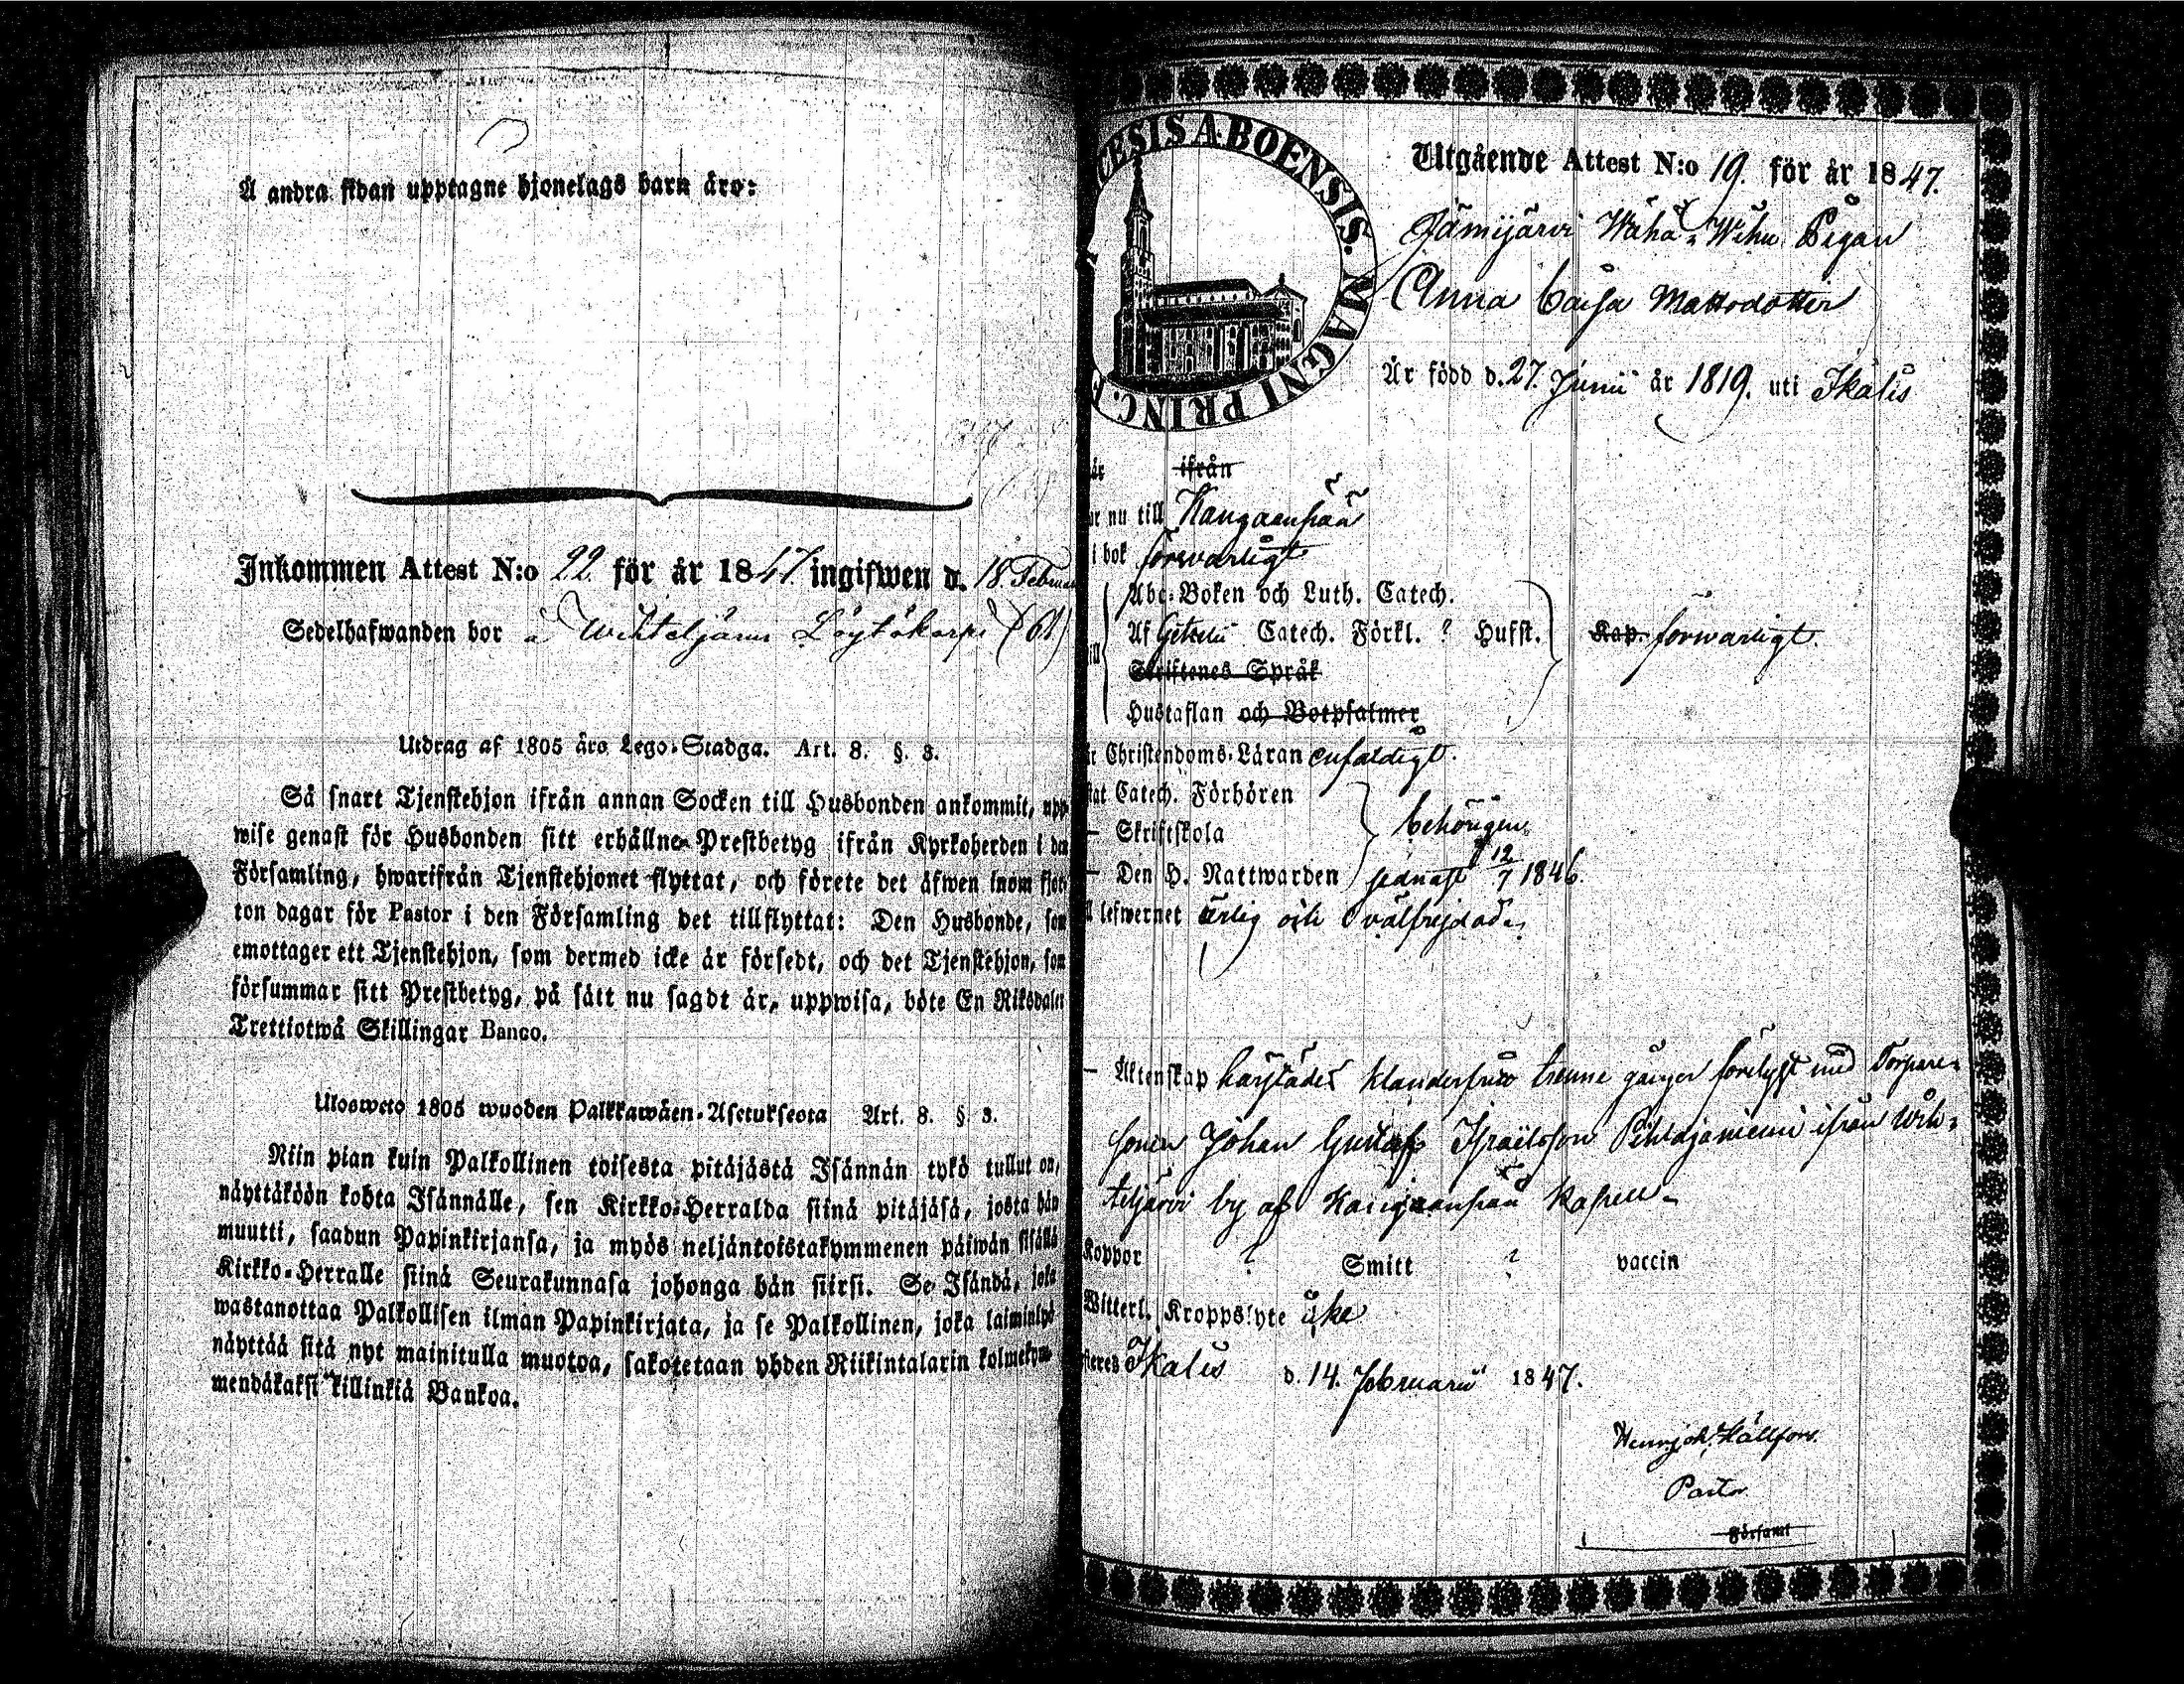 Å andra sidan upptagne hjonelags barn äro:
Inkommen Attest N:o 22. för år 1847 ingifwen d. 18 Februa
Sedelhafwanden bor å Wihteljärwi Löytökorpi (61)
Utdrag af 1805 års Lego-Stadga. Art. 8. §. 3.
Så snart Tjenstehjon ifrån annan Socken till Husbonden ankommit, upp-
wise genast för Husbonden sitt erhållne Prestbetyg ifrån Kyrkoherden i den
Församling, hwarifrån Tjenstehjonet flyttat, och förete det äfwen inom fjor-
ton dagar för Pastor i den Församling det tillflyttat: Den Husbonde, som
emottager ett Tjenstehjon, som dermed icke är försedt, och det Tjenstehjon, som
försummar sitt Prestbetyg, på sätt nu sagdt är, uppwisa, böte En Riksdaler
Trettiotwå Skillingar Banco.
Ulosweto 1805 wuoden Palkkawäen-Asetuksesta Art. 8. §. 3.
Niin pian kuin Palkollinen toisesta pitäjästä Isännän tykö tullut on,
näyttäköön kohta Isännälle, sen Kirkko-Herralda siinä pitäjäsä, josta hän
muutti, saadun Papinkirjansa, ja myös neljäntoistakymmenen päiwän sisällä
Kirkko-Herralle siinä Seurakunnasa johonga hän siirsi. Se Isändä, joka
wastanottaa Palkollisen ilman Papinkirjata, ja se Palkollinen, joka laiminlyö
näyttää sitä nyt mainitulla muotoa, sakotetaan yhden Riikintalarin kolmekym-
mendäkaksi killinkiä Bankoa.
CESIS ABOENSIS. MAGNI PRINC. F
Utgående Attest N:o 19. för år 1847.
Jämijärvi Wähä-Wihu Pigan
Anna Caisa Mattsdotter
Är född d. 27. Junii år 1819. uti Ikalis
är ifrån
nu till Kangaanpää
i bok förswarligt
Abc-Boken och Luth. Catech.
Af Gezelii Catech. Förkl. ? Hufst. Kap. förswarligt.
Skriftenes Språk
Hustaflan och Botpsalmer
Christendoms-Läran enfaldigt.
Catech. Förhören
Skriftskola behörigen
Den H. Nattwarden sednast 12/7 1846.
lefwernet ärlig och välfrejdad.
Äktenskap härstädes klanderfritt trenne gånger förelyst med Torpare-
sonen Johan Gustaf Israelsson Pihlajaniemi ifrån Wih-
teljärvi by af Kangaanpää Kapell
Koppor ? Smitt ? vaccin
Witterl. Kroppslyte icke
Ikalis d. 14. Februarii 1847.
Henr. Joh. Hällfors.
Pastor
Församl